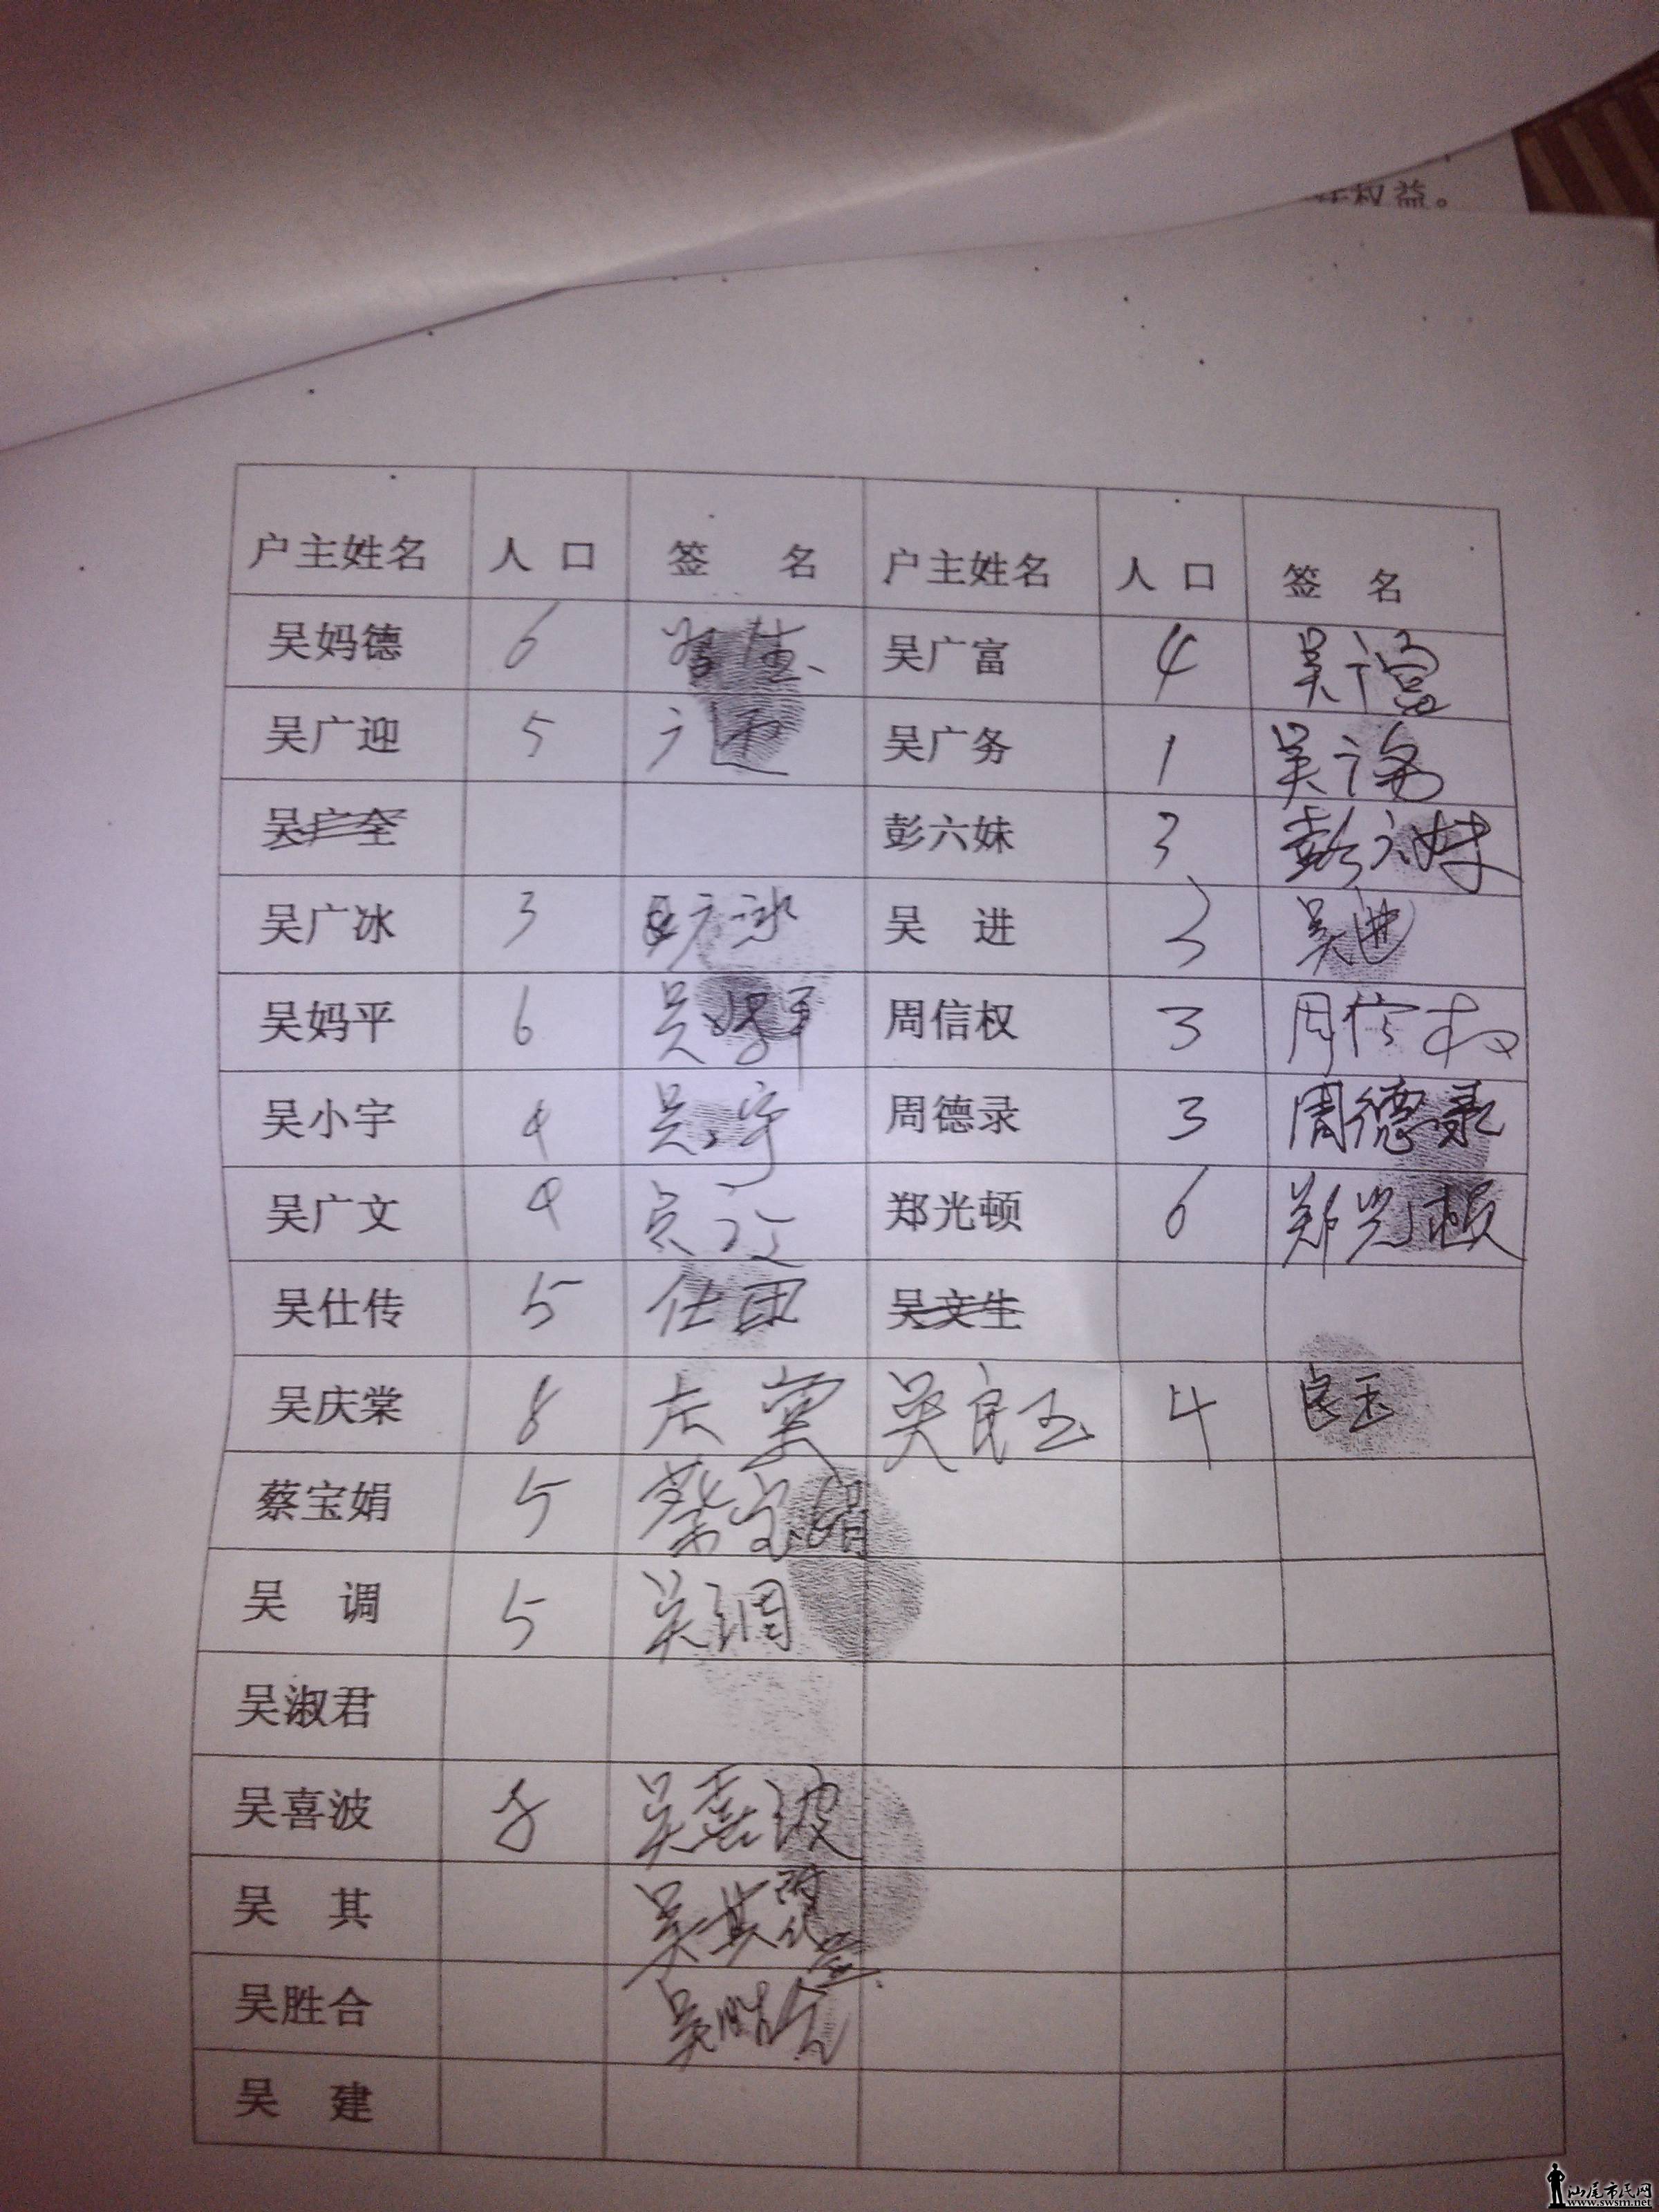 权益。
户主姓名 人口 签名 户主姓名 人口 签名
吴妈德 6 吴广富 4 吴广富
吴广迎 5 广迎 吴广务 1 吴广务
吴广全 彭六妹 3 彭六妹
吴广冰 3 吴广冰 吴进 3 吴进
吴妈平 6 吴妈平 周信权 3 周信权
吴小宇 4 吴小宇 周德录 3 周德录
吴广文 4 吴广文 郑光顿 6 郑光顿
吴仕传 5 仕 吴文生
吴庆棠 8 庆棠 吴良玉 4 良玉
蔡宝娟 5 蔡宝娟
吴调 5 吴调
吴淑君
吴喜波 8 吴喜波
吴其 吴其
吴胜合 吴胜合
吴建
汕尾市民网
www.swsm.net